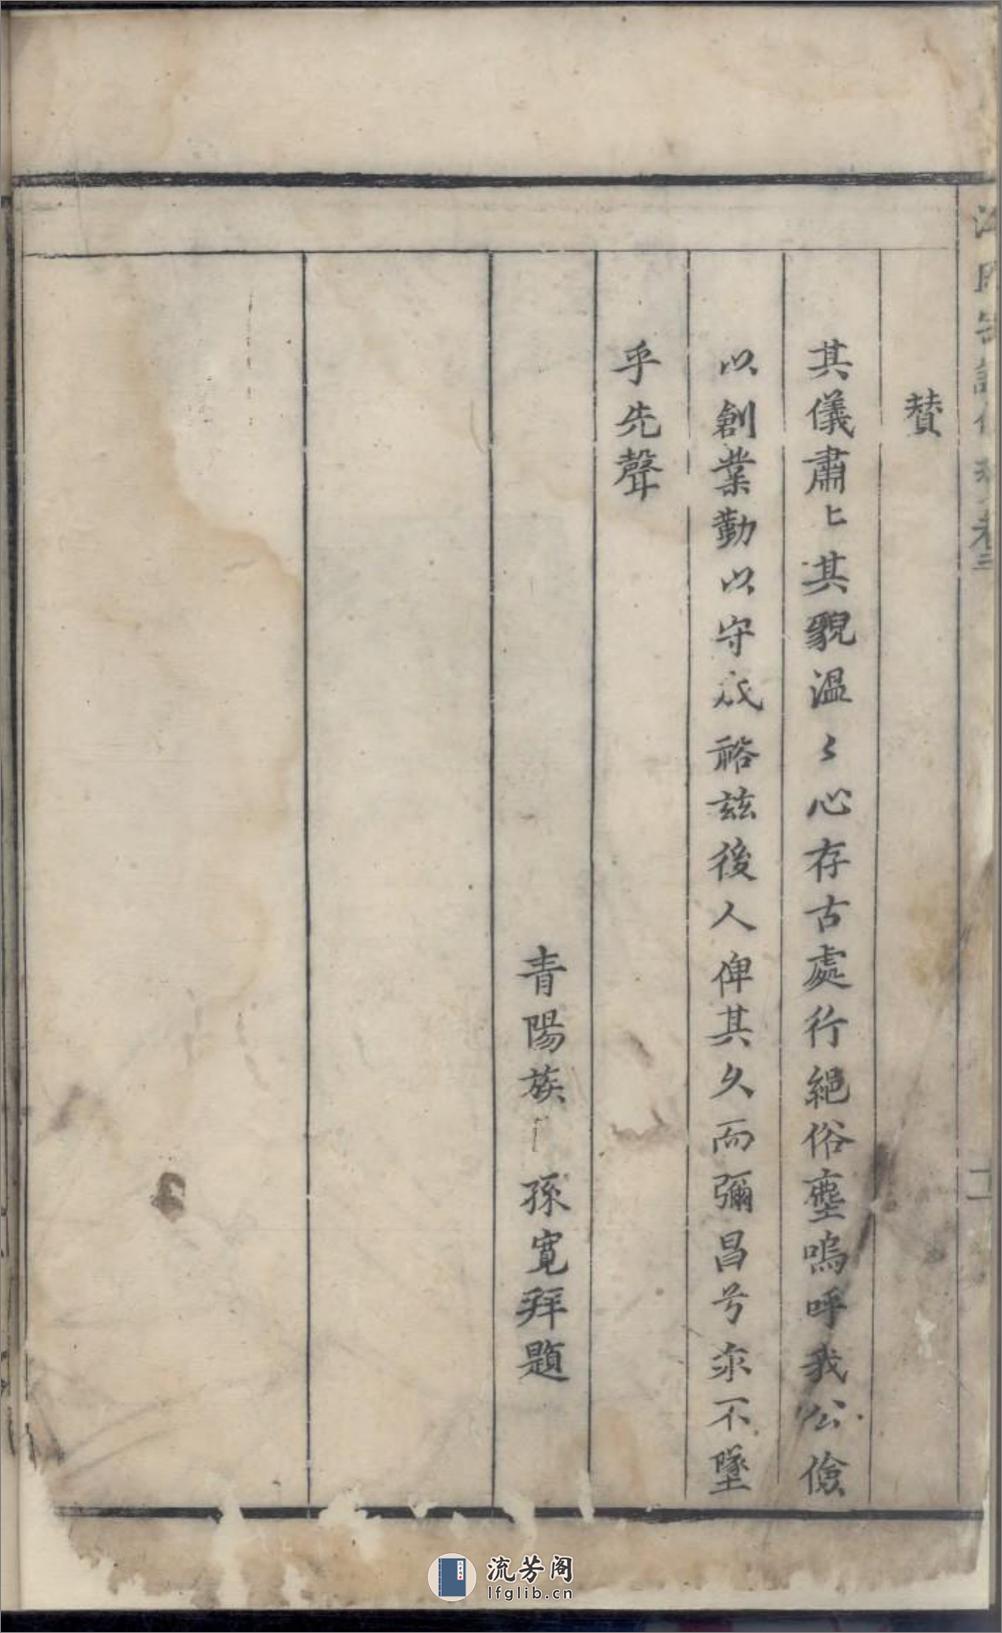 贊
其儀肅〻其貌溫〻心存古處行絕俗塵嗚呼我公儉
以創業勤以守成裕茲後人俾其久而彌昌兮永不墜
乎先聲
青陽族 孫寬拜題
流芳阁
lfglib.cn